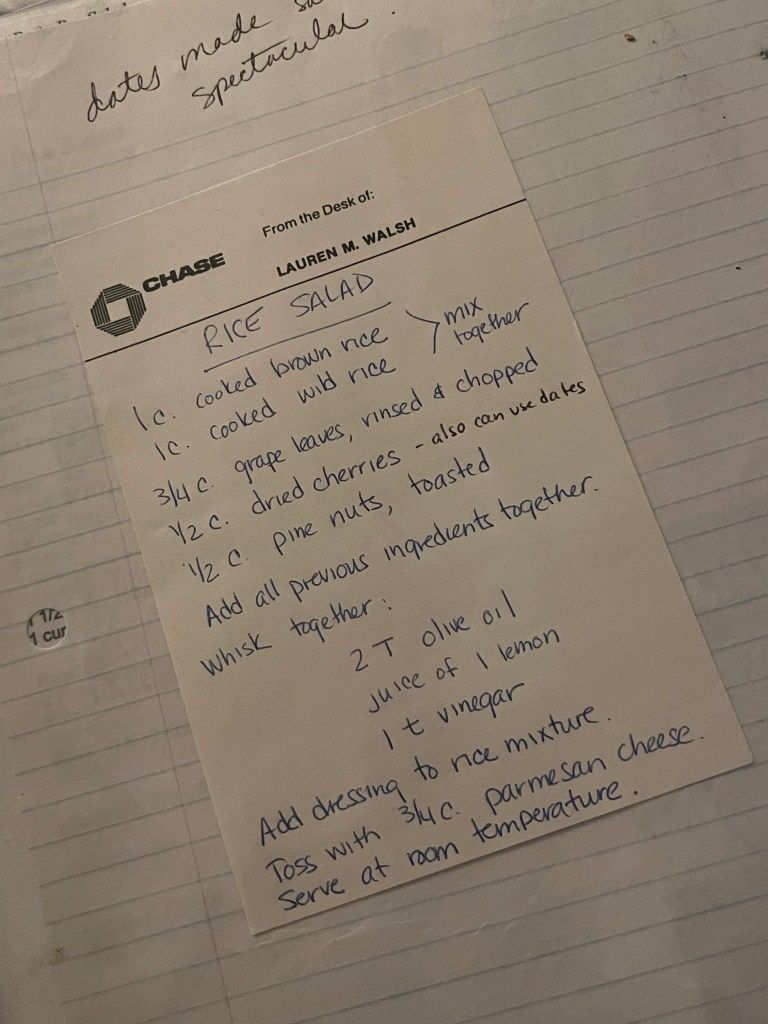 dates made
spectacular.
CHASE
From the Desk of:
LAUREN M. WALSH
RICE SALAD
1 c. cooked brown rice
1 c. cooked wild rice
mix
together
3/4 c. grape leaves, rinsed & chopped
1/2 c. dried cherries - also can use dates
1/2 c. pine nuts, toasted
Add all previous ingredients together.
Whisk together:
2 T olive oil
juice of 1 lemon
1 t vinegar
Add dressing to rice mixture.
Toss with 3/4 c. parmesan cheese.
Serve at room temperature.
1/2
1 cur